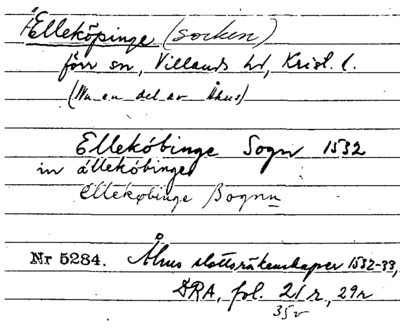 Ælleköpinge (socken)
förr sn, Villands hd, Krist. l.
(Nu en del av Åhus)
Ellekóbinge Sogn 1532
in ällekóbinge
Ellekobinge Bognn
Nr 5284. Åhus slottsräkenskaper 1532-33,
DRA, fol. 21r, 29r
35v